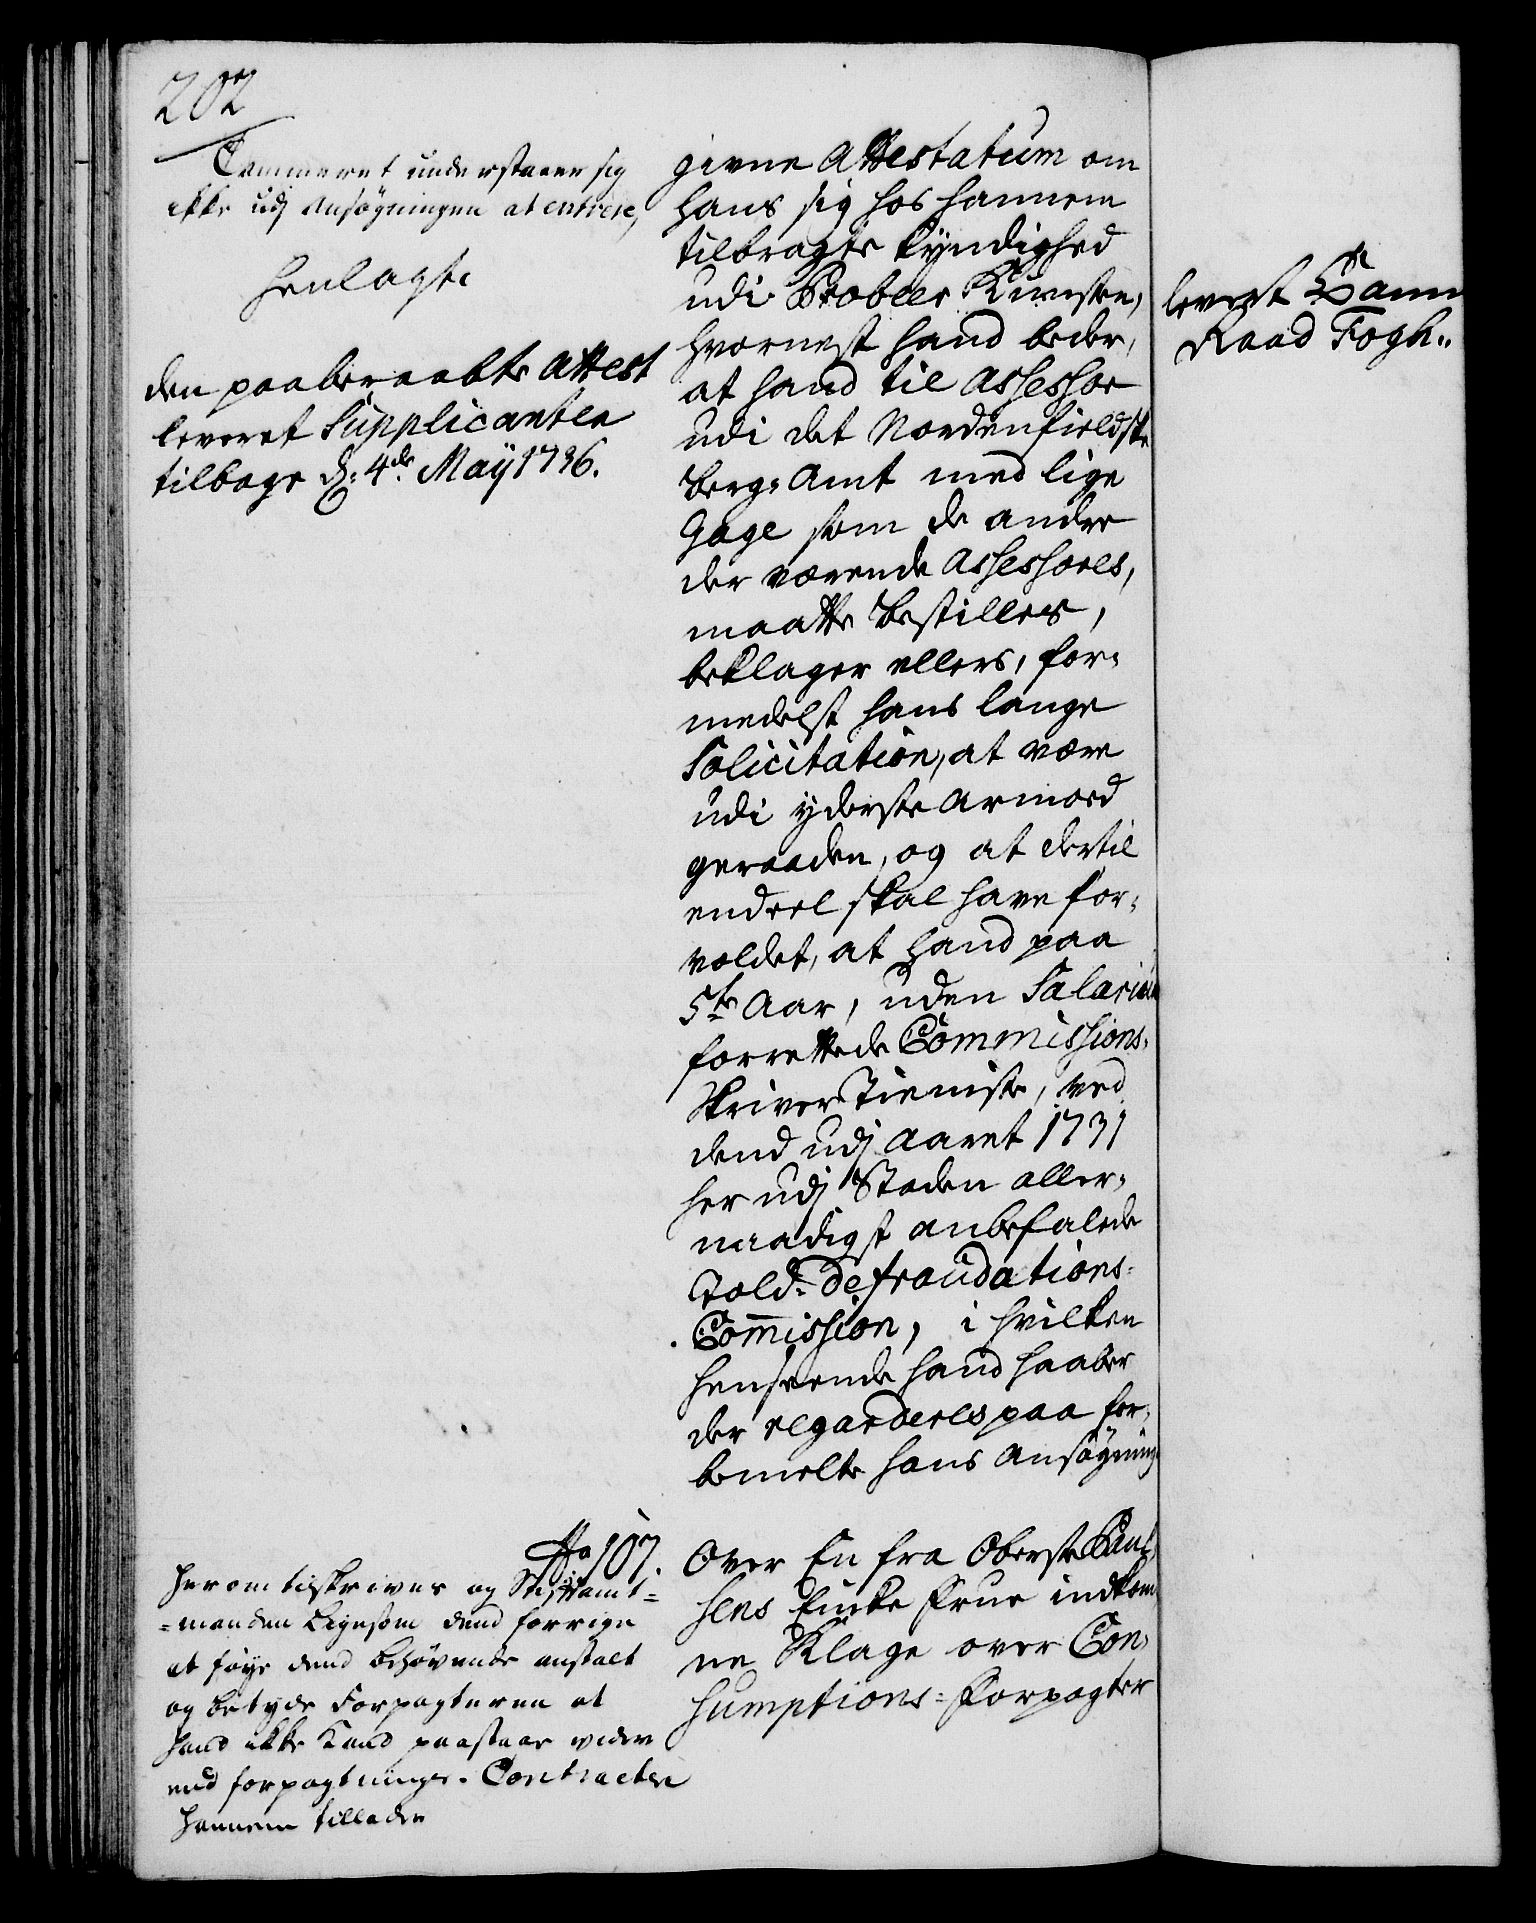 202
Cammeret understaaer sig
ikke udj Ansøgningen at entrere,
henlagt.
den paaberaabte Attest
leveret Supplicanten
tilbage d: 4de May 1736.
givne Attestatum om
hans sig hos hannem
tilbragte kyndighed
udi Probeer Kunsten,
hvornest hand beder,
at hand til Assessor
udi det Nordenfieldske
Berg-Amt med lige
Gage som de andre
der værende Assessores,
maatte bestilles,
beklager ellers, for-
medelst hans lange
Solicitation, at være
udi yderste Armoed
geraaden, og at dertil
endeel skal have for-
voldet, at hand paa
5te Aar, uden Salarium
forrettede Commissions-
Skriver Tieniste, ved
dend udj Aaret 1731
her udj Staden aller-
naadigst anbefalede
Told-defraudations-
Commission, i hvilken
henseende hand haaber
der regarderes paa for-
bemelte hans Ansøgning
levert Cam̅
Raad Fogh..
No 107.
herom tilskrives og Stiftamt-
-manden ligesom dend forrige
at føye dend behøvende anstalt
og betyde Forpagteren at
hand ikke kand paastaae videre
end forpagtnings-Contracten
hannem tillader
Over En fra Oberste
sens Encke Frue indkom-
ne Klage over Con-
sumptions-Forpagter